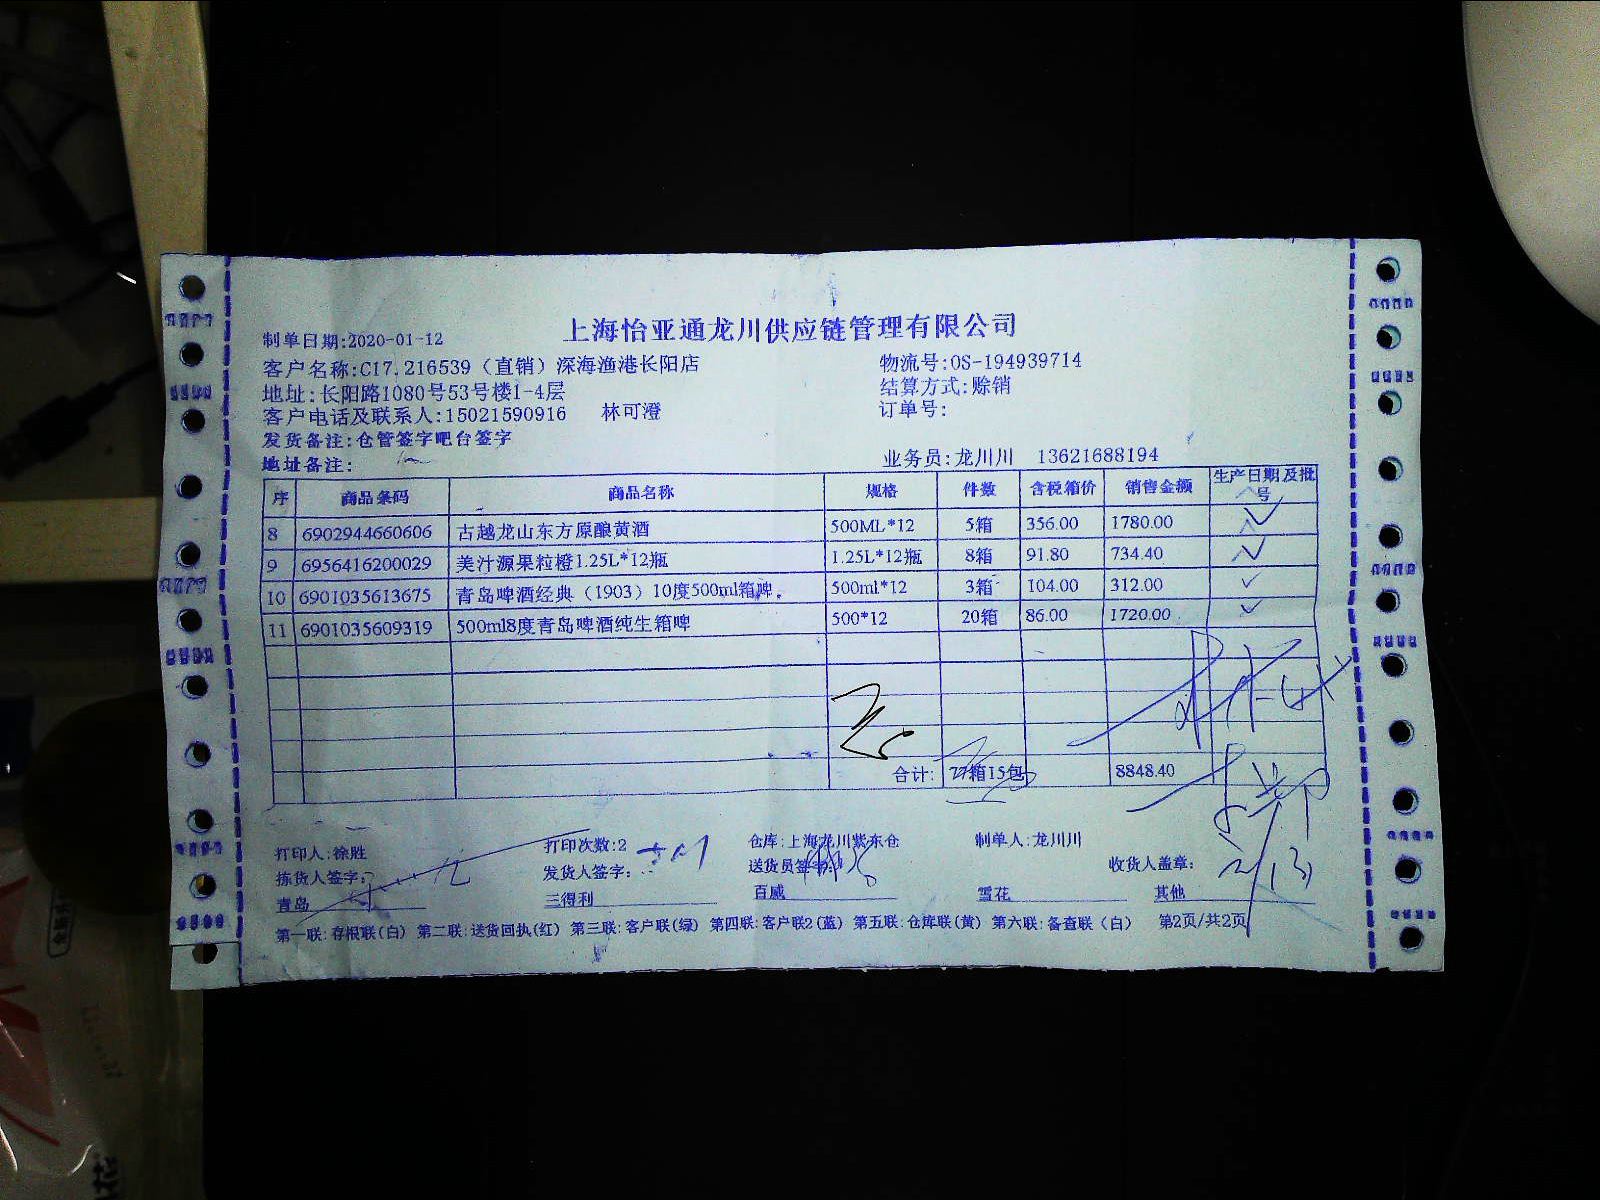 上海怡亚通龙川供应链管理有限公司
制单日期:2020-01-12
客户名称:C17.216539（直销）深海渔港长阳店 物流号:OS-194939714
地址:长阳路1080号53号楼1-4层 结算方式:赊销
客户电话及联系人:15021590916 林可澄 订单号:
发货备注:仓管签字吧台签字
地址备注: 业务员:龙川川 13621688194
序 商品条码 商品名称 规格 件数 含税箱价 销售金额 生产日期及批号
8 6902944660606 古越龙山东方原酿黄酒 500ML*12 5箱 356.00 1780.00
9 6956416200029 美汁源果粒橙1.25L*12瓶 1.25L*12瓶 8箱 91.80 734.40
10 6901035613675 青岛啤酒经典（1903）10度500ml箱啤. 500ml*12 3箱 104.00 312.00
11 6901035609319 500ml8度青岛啤酒纯生箱啤 500*12 20箱 86.00 1720.00
合计: 箱15包 8848.40
打印人:徐胜 打印次数:2 仓库:上海龙川紫东仓 制单人:龙川川
拣货人签字: 发货人签字: 送货员签字: 收货人盖章:
青岛 三得利 百威 雪花 其他
第一联:存根联(白) 第二联:送货回执(红) 第三联:客户联(绿) 第四联:客户联2(蓝) 第五联:仓库联(黄) 第六联:备查联（白） 第2页/共2页